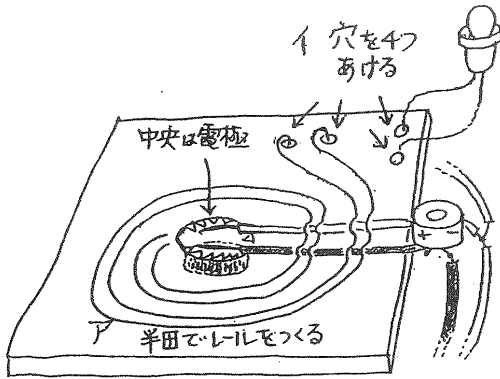 イ 穴を4つ
あける
中央は電極
+
ア
半田でレールをつくる